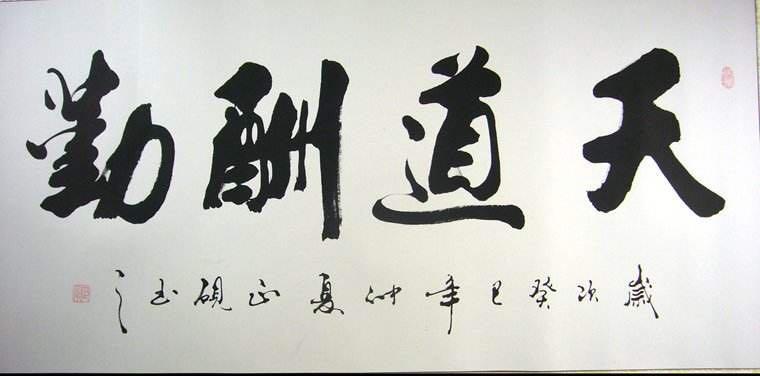 天道酬勤
歲次癸巳年仲夏正硯書